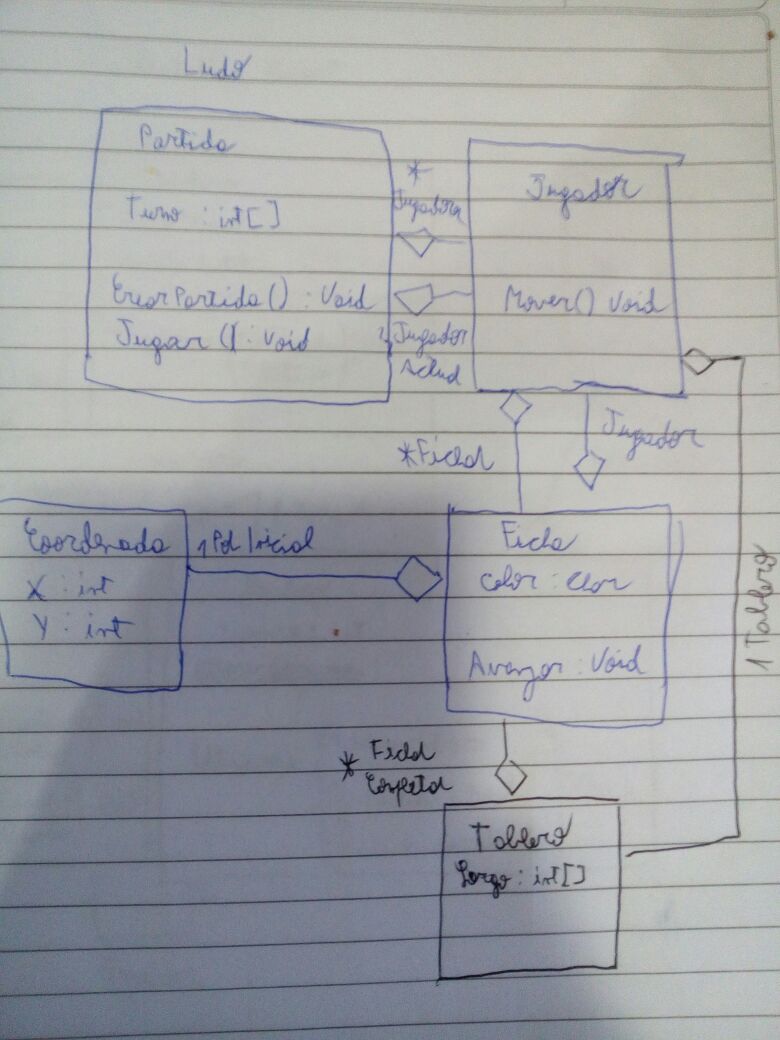 Ludo
Partida
Turno : int[]
CrearPartida() : Void
Jugar() : Void
*
Jugadores
1 Jugador
Actual
Jugador
Mover() Void
*Fichas
Jugador
Coordenada
X : int
Y : int
1 Pos Inicial
Ficha
Color : Color
Avanzar : Void
1 Tablero
* Fichas
Tablero
Largo : int[]